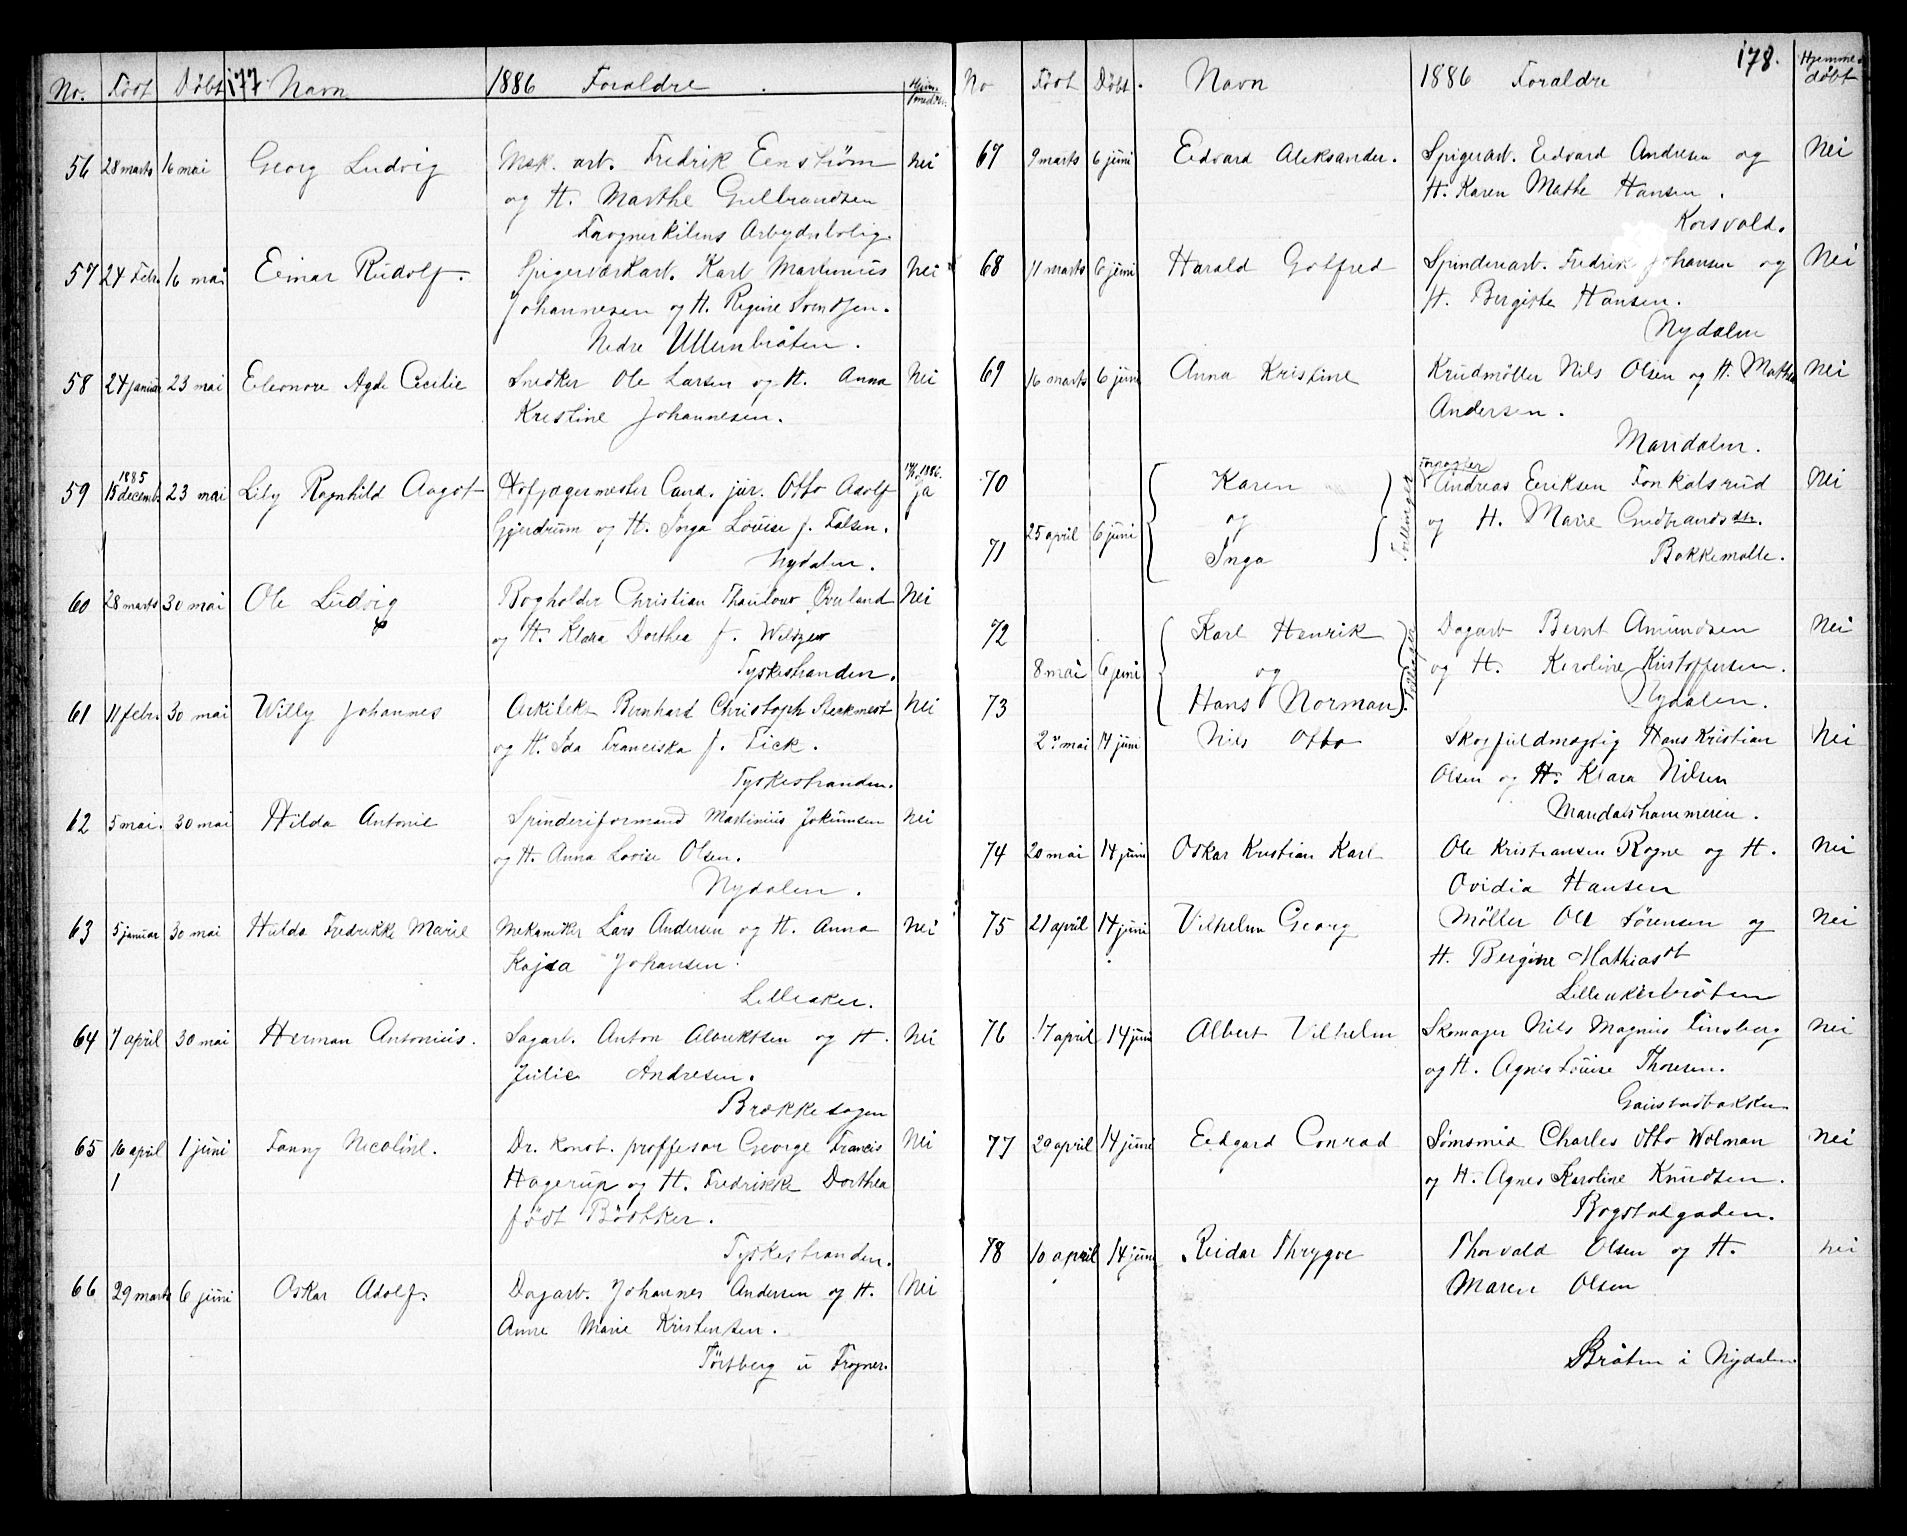 No. Født Døbt 177 Navn 1886 Forældre
56 28 marts 16 mai Georg Ludvig Mek. arb. Fredrik Eenstrøm Nei
og H. Marthe Gulbrandsen
Frognerkilens Arbyderbolig
57 24 Febr. 16 mai Einar Rudolf. Spigerværkarb. Karl Martinius Nei
Johannesen og H. Regine Svendsen.
Nedre Ullernbråten.
58 24 januar 23 mai Eleonore Agde Cecilie Snedker Ole Larsen og H. Anna Nei
Kristine Johannesen.
59 1885 15 decemb. 23 mai Lily Ragnhild Aagot Hofjægermester Cand. jur. Otto Adolf 1886. ja
Gjerdrum og H. Inga Louise f. Falsen.
Nydalen.
60 28 marts 30 mai Ole Ludvig Bogholder Christian Thaulow Overland Nei
og H. Klara Dorthea f.
Tyskestranden.
61 11 febr. 30 mai Willy Johannes Arkitekt Bernhard Christoph Nei
og H. Ida Franciska f. Fick.
Tyskestranden.
62 5 mai. 30 mai Hilda Antonie Spinderiformand Martinius Jokumsen Nei
og H. Anna Lovise Olsen.
Nydalen.
63 5 januar 30 mai Hulda Fredrikke Marie Mekaniker Lars Andersen og H. Anna Nei
Kajsa Johansen.
Lilleaker.
64 7 april 30 mai Herman Antonius. Sagarb. Anton Albrektsen og H. Nei
Julie Andresen.
Brækkesagen
65 16 april 1 juni Fanny Nicoline. Dr. konst. proffesor George Francis Nei
Hagerup og H. Fredrikke Dorthea
født Bödtker.
Tyskestranden.
66 29 marts 6 juni Oskar Adolf. Dagarb. Johannes Andersen og H. Nei
Anne Marie Kristensen.
Tørtberg u Frogner.
No Født Døbt. Navn 1886 Forældre 178. Hjemmedøbt
67 9 marts 6 juni Edvard Aleksander. Spigerarb. Edvard Andresen og Nei
H. Karen Mathe Hansen.
Korsvold.
68 11 marts 6 juni Harald Gotfred Spinderiarb. Fredrik Johansen og Nei
H. Bergitte Hansen.
Nydalen
69 16 marts 6 juni Anna Kristine Krudmøller Nils Olsen og H. Mathea Nei
Andersen.
Maridalen.
70 Karen Forpagter Andreas Eriksen Fonkalsrud Nei
25 april 6 juni og Tvillinger og H. Marie Gudbrandsdtr.
71 Inga Bakkemølle.
72 Karl Henrik Dagarb Bernt Amundsen Nei
8 mai 6 juni og Tvillinger og H. Karoline Kristoffersen.
73 Hans Norman Nydalen.
2 mai 14 juni Nils Otto Skogfuldmægtig Hans Kristian Nei
Olsen og H. Klara Nilsen
Maridalshammeren.
74 20 mai 14 juni Oskar Kristian Karl Ole Kristiansen Rogne og H. Nei
Ovidia Hansen
75 21 april 14 juni Vilhelm Georg Møller Ole Sørensen og Nei
H. Bergine Mathiasdt
Lilleakerbråten
76 17 april 14 juni Albert Vilhelm Skomager Nils Magnus Linsberg Nei
og H. Agnes Louise Thoresen.
Gaustadbakken
77 20 april 14 juni Edgard Conrad Sømsmid Charles Otto Wolman Nei
og H. Agnes Karoline Knudsen.
Bogstadgaden.
78 10 april 14 juni Reidar Thrygve Thorvald Olsen og H. Nei
Maren Olsen
Bråten i Nydalen